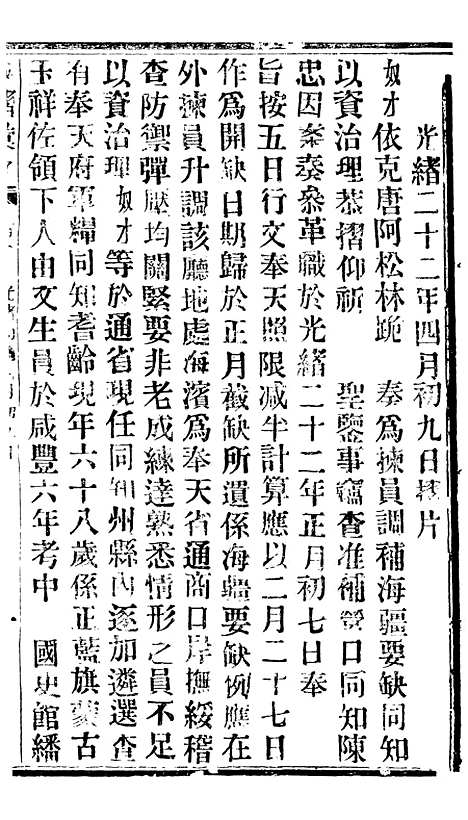 光緒二十二年四月初九日摺片
奴才依克唐阿松林跪 奏爲揀員調補海疆要缺同知
以資治理恭摺仰祈 聖鑒事竊查准補營口同知陳
忠因案奏參革職於光緒二十二年正月初七日奉
旨按五日行文奉天照限減半計算應以二月二十七日
作爲開缺日期歸於正月截缺所遺係海疆要缺例應在
外揀員升調該廳地處海濱爲奉天省通商口岸撫綏稽
查防禦彈壓均關緊要非老成練達熟悉情形之員不足
以資治理奴才等於通省現任同知州縣內逐加遴選查
有奉天府軍糧同知耆齡現年六十八歲係正藍旗蒙古
玉祥佐領下人由文生員於咸豐六年考中 國史館繙